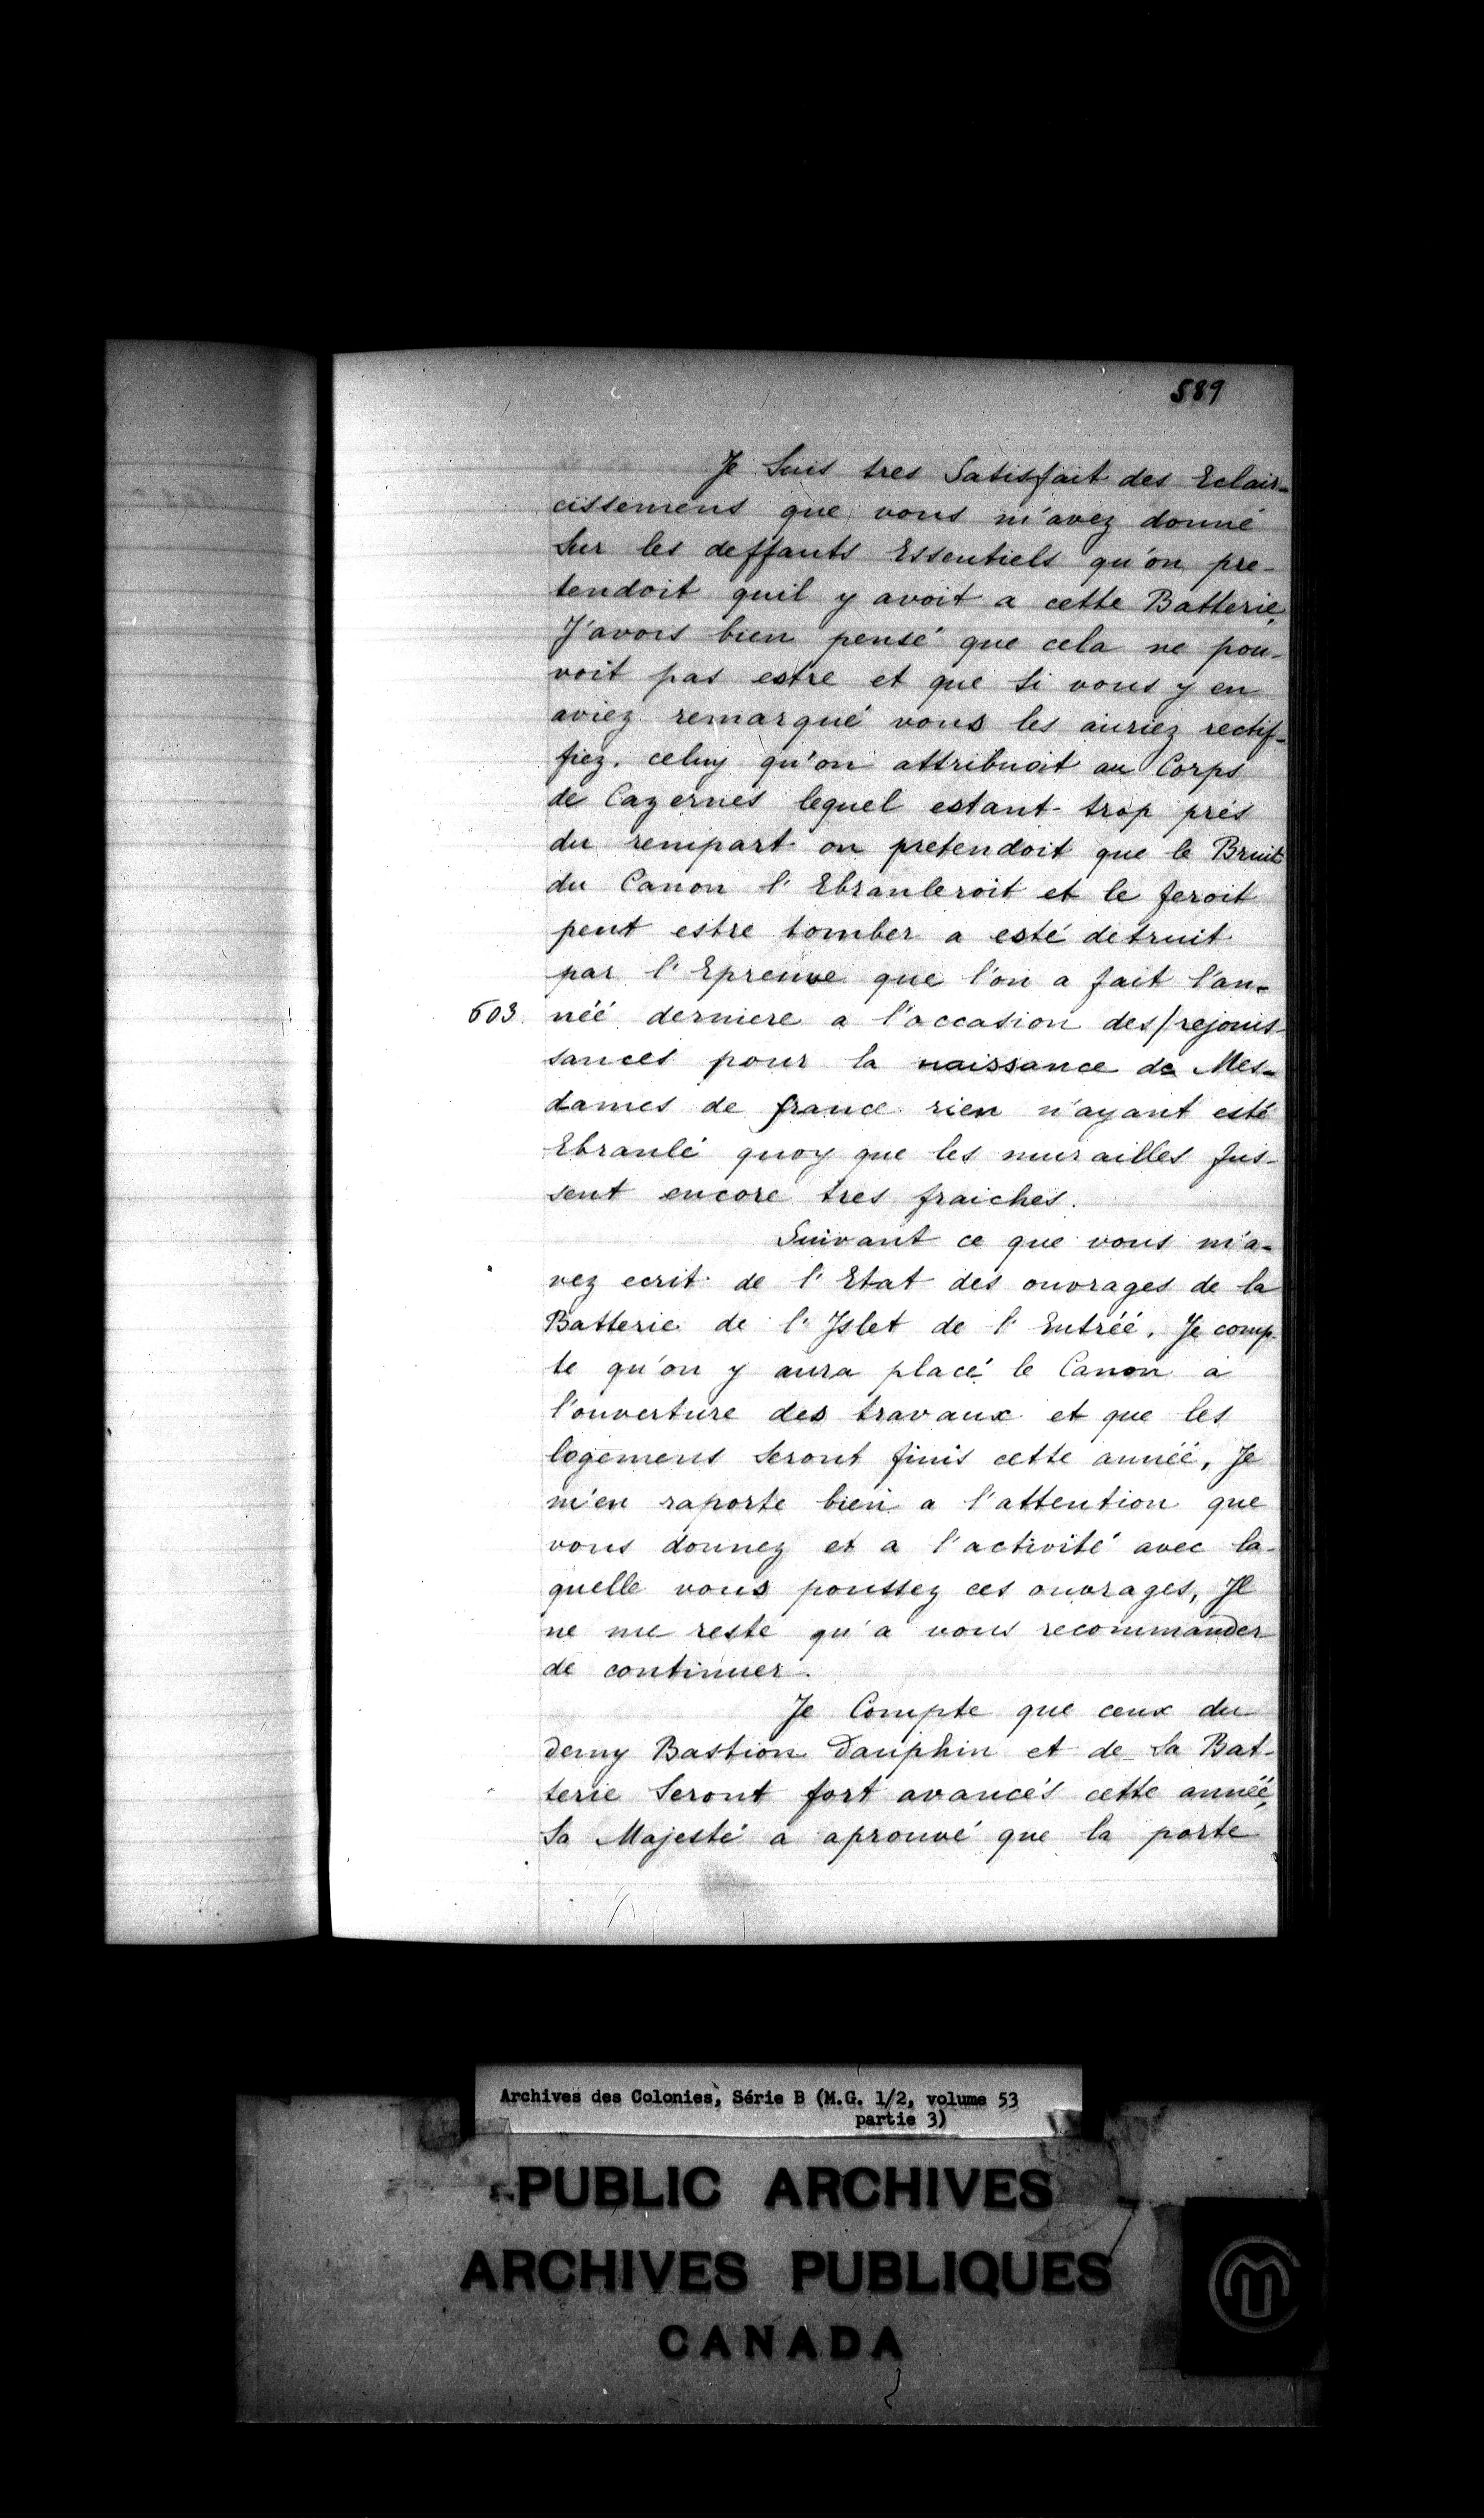 589
Je Suis tres Satisfait des Eclair-
cissemens que vous m'avez donné
Sur les deffauts Essentiels qu'on pre-
tendoit quil y avoit a cette Batterie,
J'avois bien pensé que cela ne pou-
voit pas estre et que Si vous y en
aviez remarqué vous les auriez rectif-
fiez. celuy qu'on attribuoit au Corps
de Cazernes lequel estant trop prés
du rempart on pretendoit que le Bruit
du Canon l'Ebranleroit et le feroit
peut estre tomber a esté detruit
par l'Epreuve que l'on a fait l'an-
603. néé derniere a l'occasion des/rejouis-
sances pour la naissance de Mes-
dames de france rien n'ayant esté
Ebranlé quoy que les murailles fus-
sent encore tres fraiches.
Suivant ce que vous m'a-
vez ecrit de l'Etat des ouvrages de la
Batterie de l'Islet de l'Entréé, Je comp-
te qu'on y aura placé le Canon a
l'ouverture des travaux et que les
logemens Seront finis cette annéé, Je
m'en raporte bien a l'attention que
vous donnez et a l'activité avec la-
quelle vous poussez ces ouvrages, Il
ne me reste qu'a vous recommander
de continuer.
Je Compte que ceux du
Demy Bastion Dauphin et de la Bat-
terie Seront fort avancés cette annéé,
Sa Majesté a aprouvé que la porte
Archives des Colonies, Série B (M.G. 1/2, volume 53
partie 3)
PUBLIC ARCHIVES
ARCHIVES PUBLIQUES
CANADA